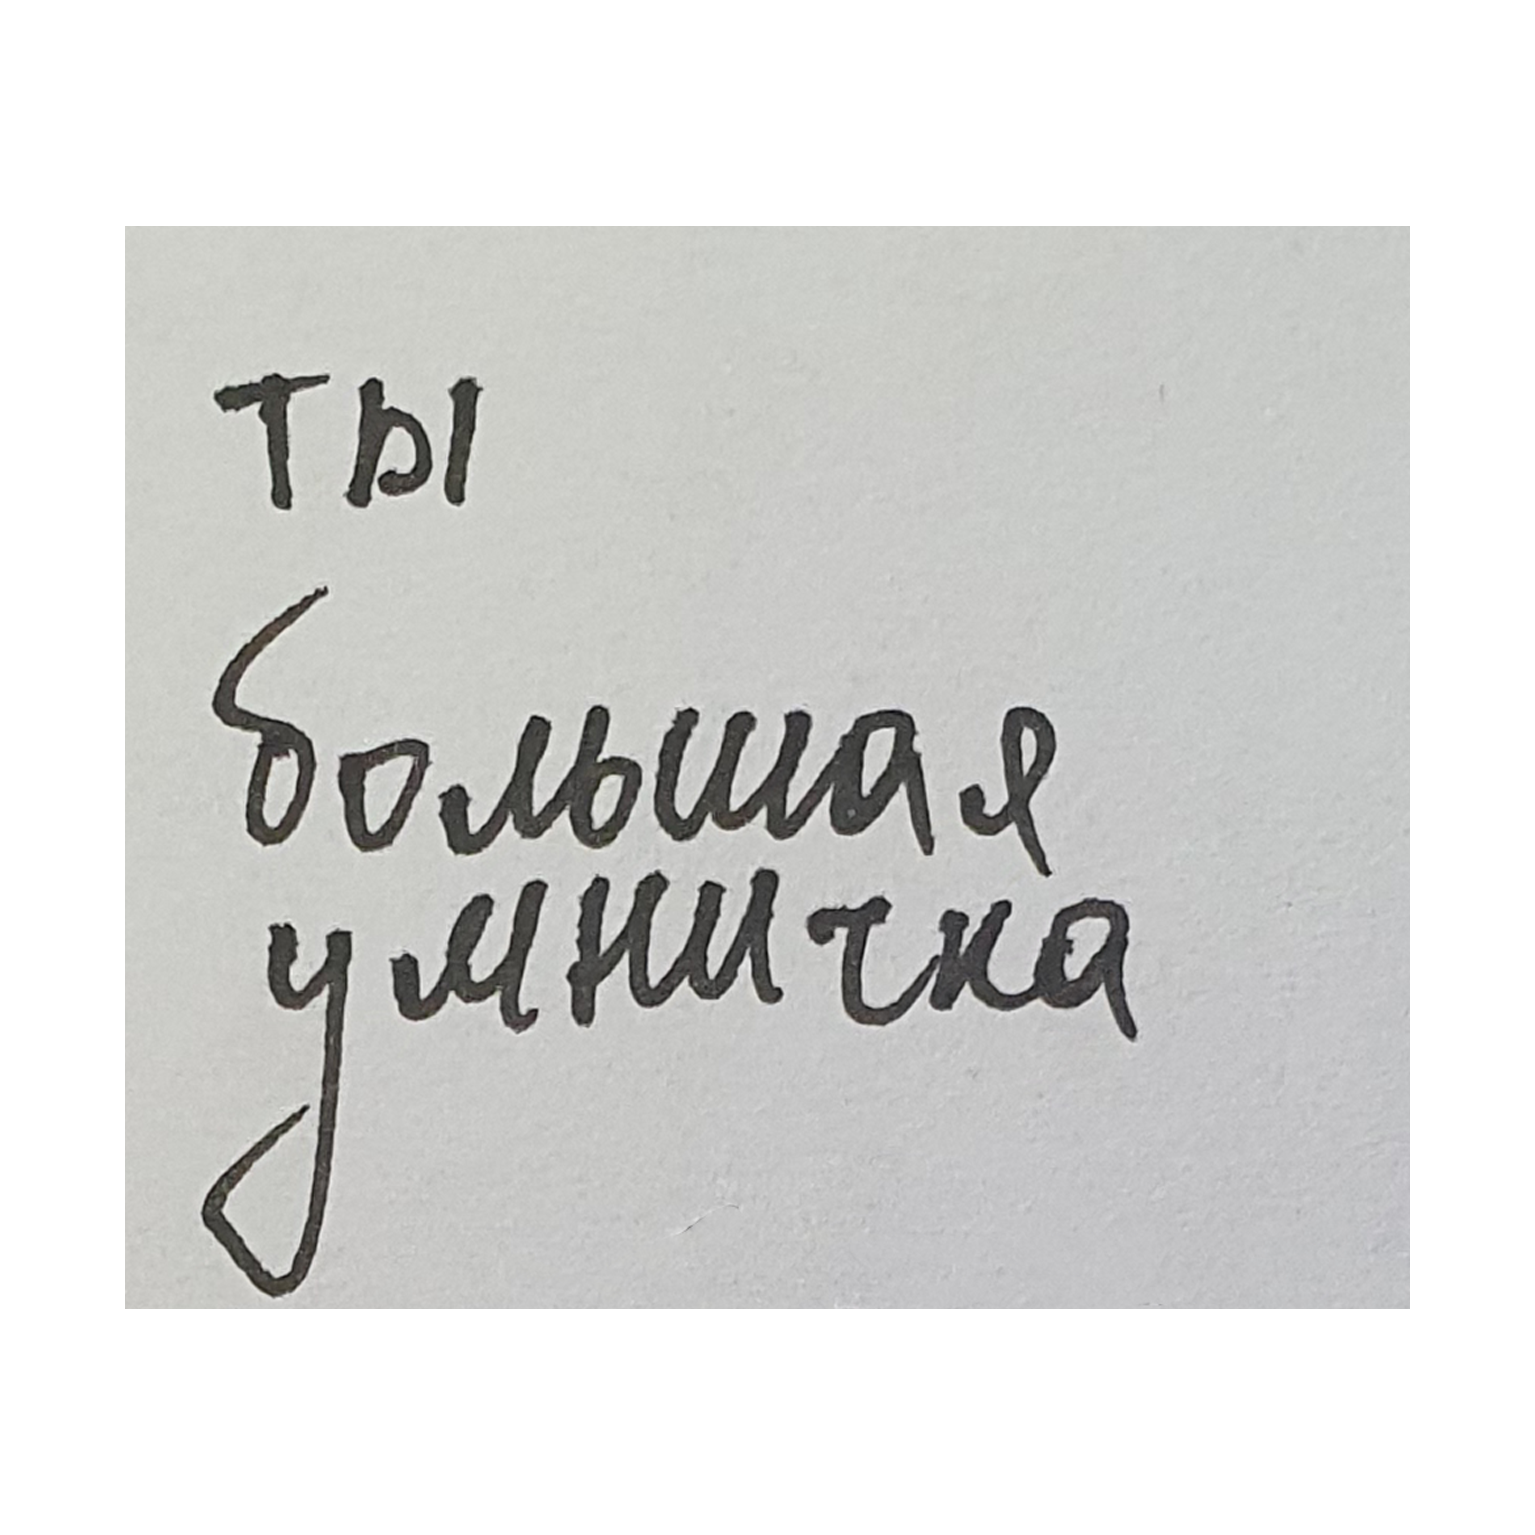 ты
большая
умничка